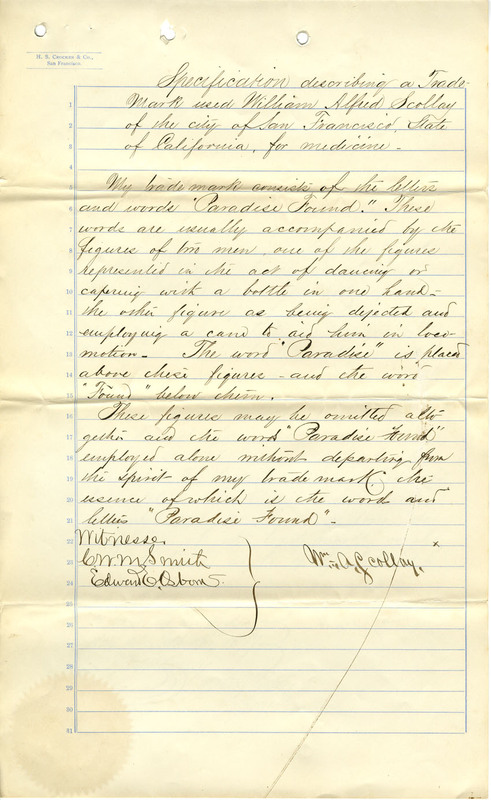 H. S. Crocker & Co.,
San Francisco.
Specification describing a Trade
1 Mark used William Alfred Scollay
2 of the city of San Francisco, State
3 of California, for medicine -
4
5 My trade mark consists of the letters
6 and words "Paradise Found." These
7 words are usually accompanied by the
8 figures of two men, one of the figures
9 represented in the act of dancing or
10 capering with a bottle in one hand -
11 the other figure as being dejected and
12 employing a cane to aid him in loco-
13 motion - The word "Paradise" is placed
14 above these figures - and the word
15 "Found" below them.
16 These figures may be omitted alto-
17 gether and the words "Paradise Found"
18 employed alone without departing from
19 the spirit of my trade mark, the
20 essence of which is the words and
21 letters "Paradise Found" -
22 Witnesses
23 C. W. M. Smith Wm. A. Scollay.
24 Edward E. Osborn.
25
26
27
28
29
30
31